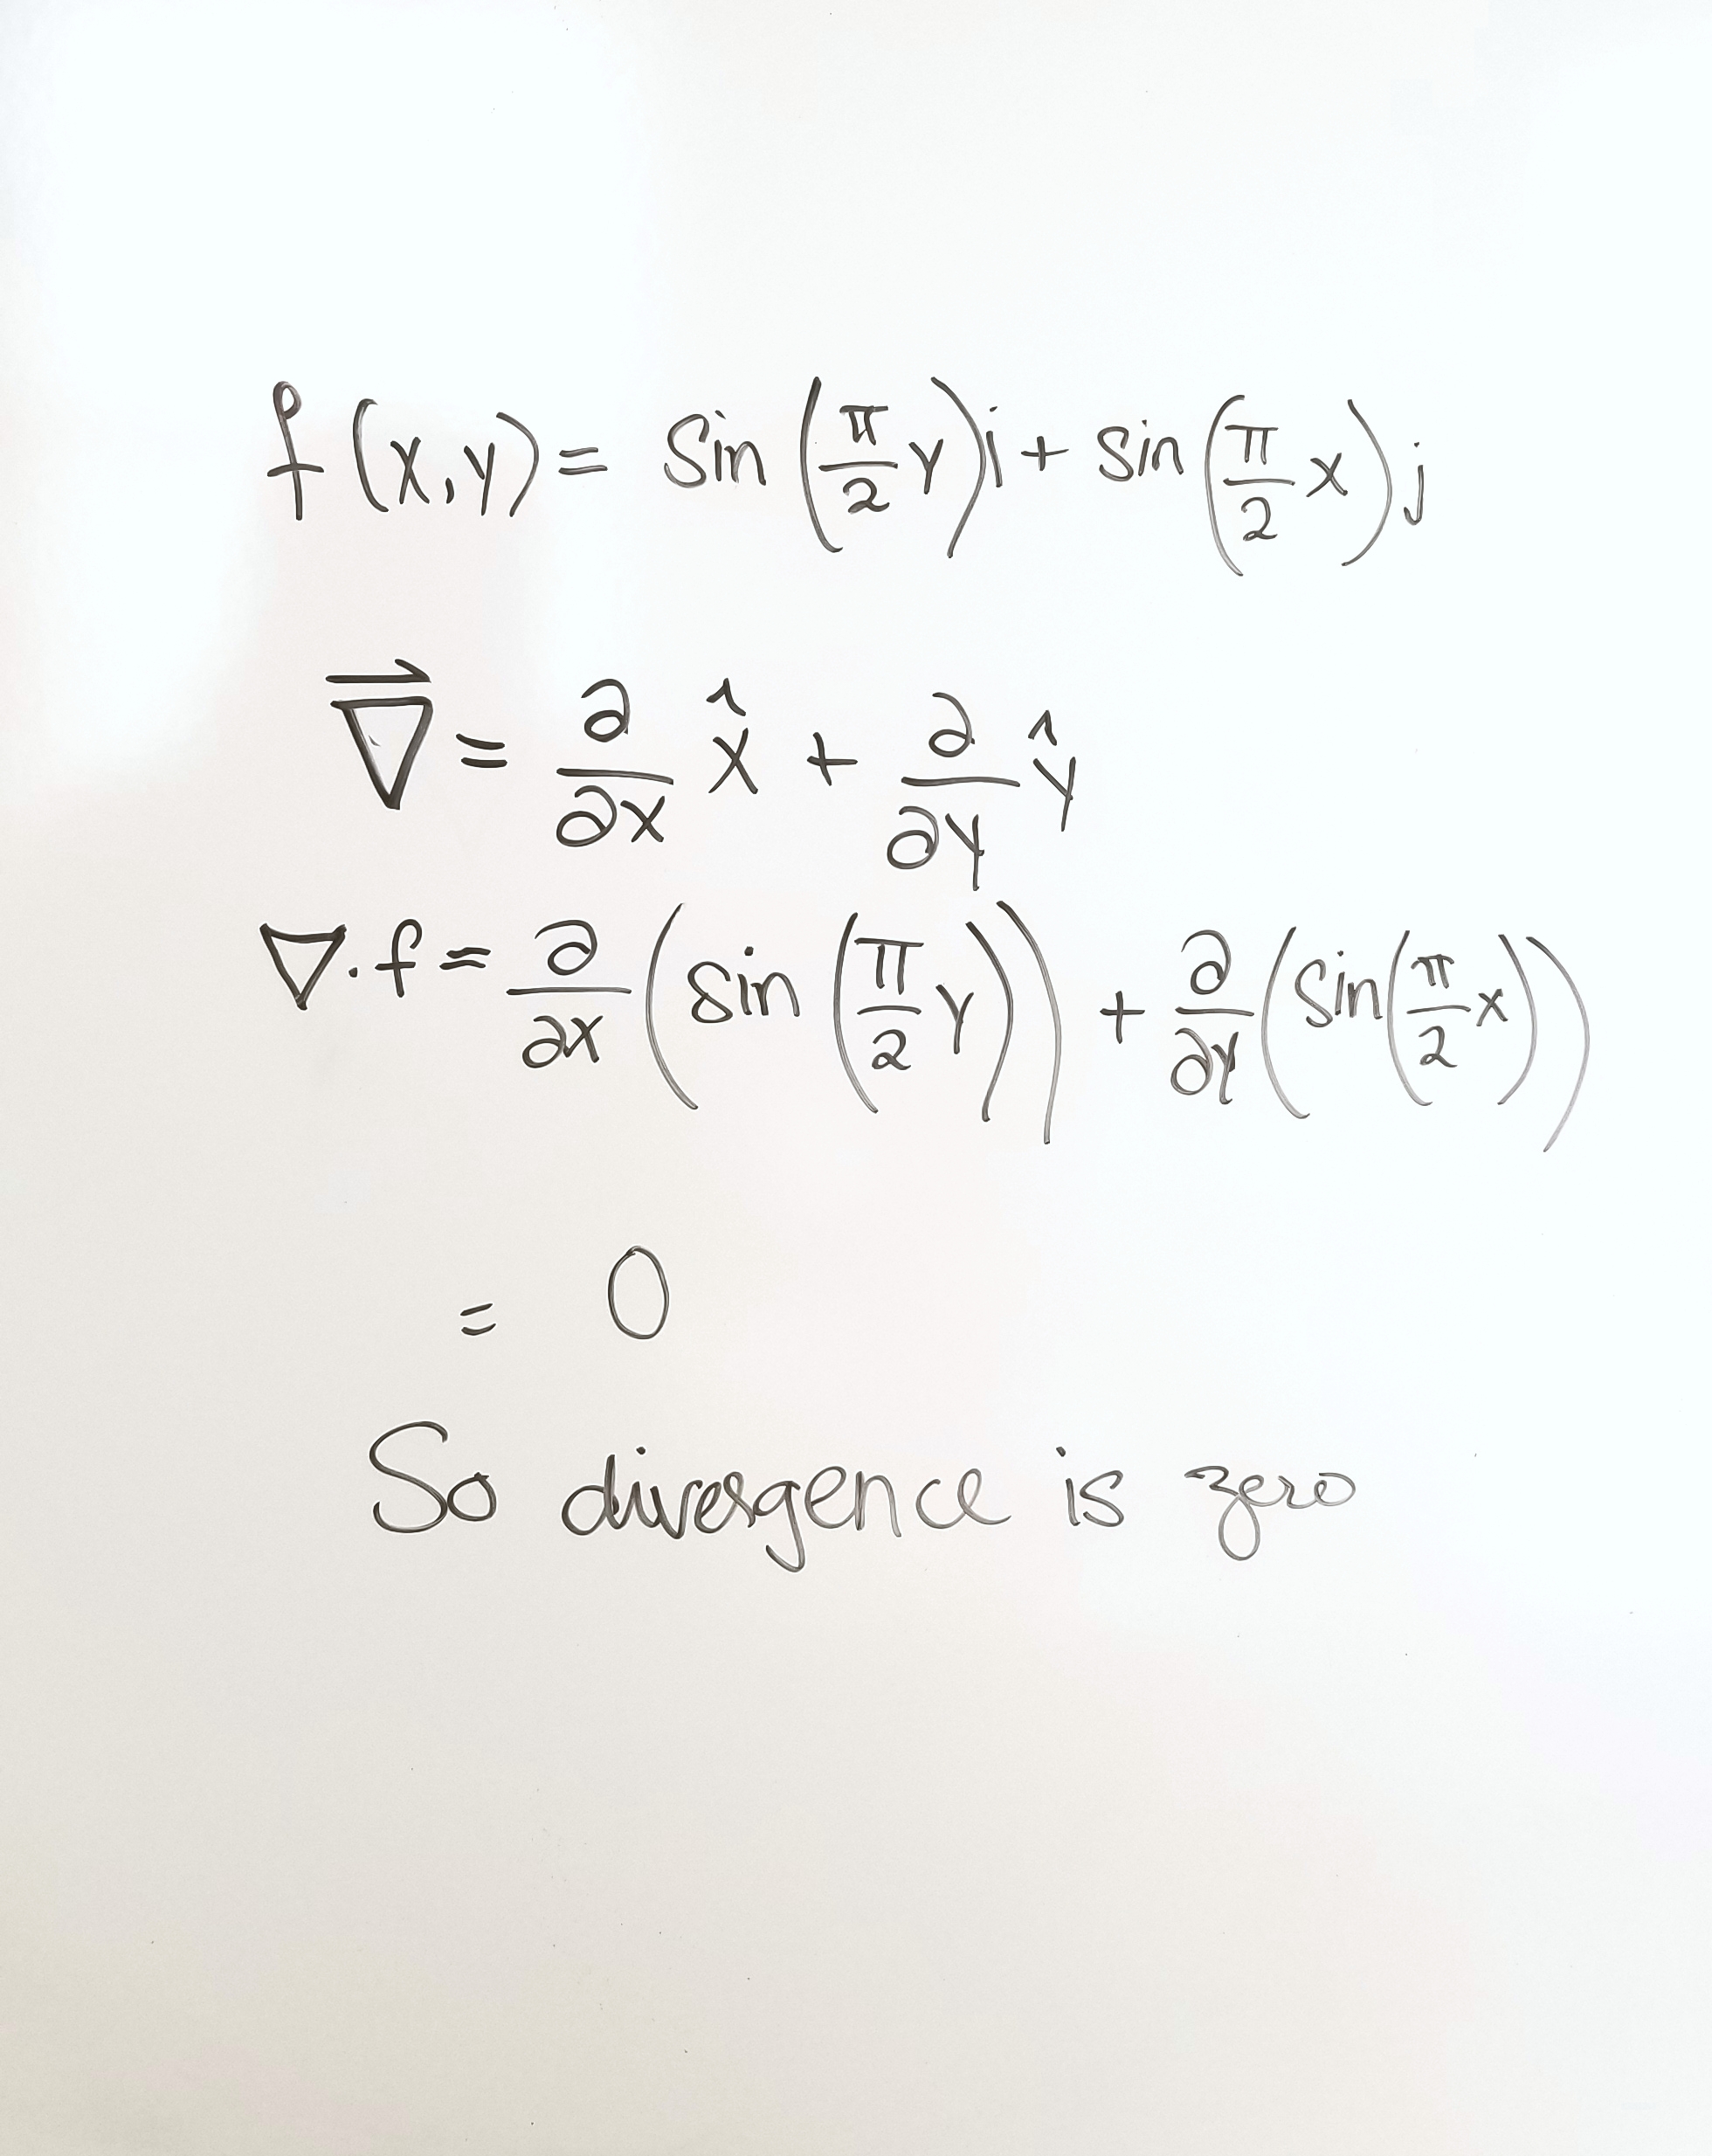 f(x,y) = Sin(π/2 y)i + Sin(π/2 x)j
∇⃗ = ∂/∂x x̂ + ∂/∂y ŷ
∇.f = ∂/∂x (Sin(π/2 y)) + ∂/∂y (Sin(π/2 x))
= 0
So divergence is zero